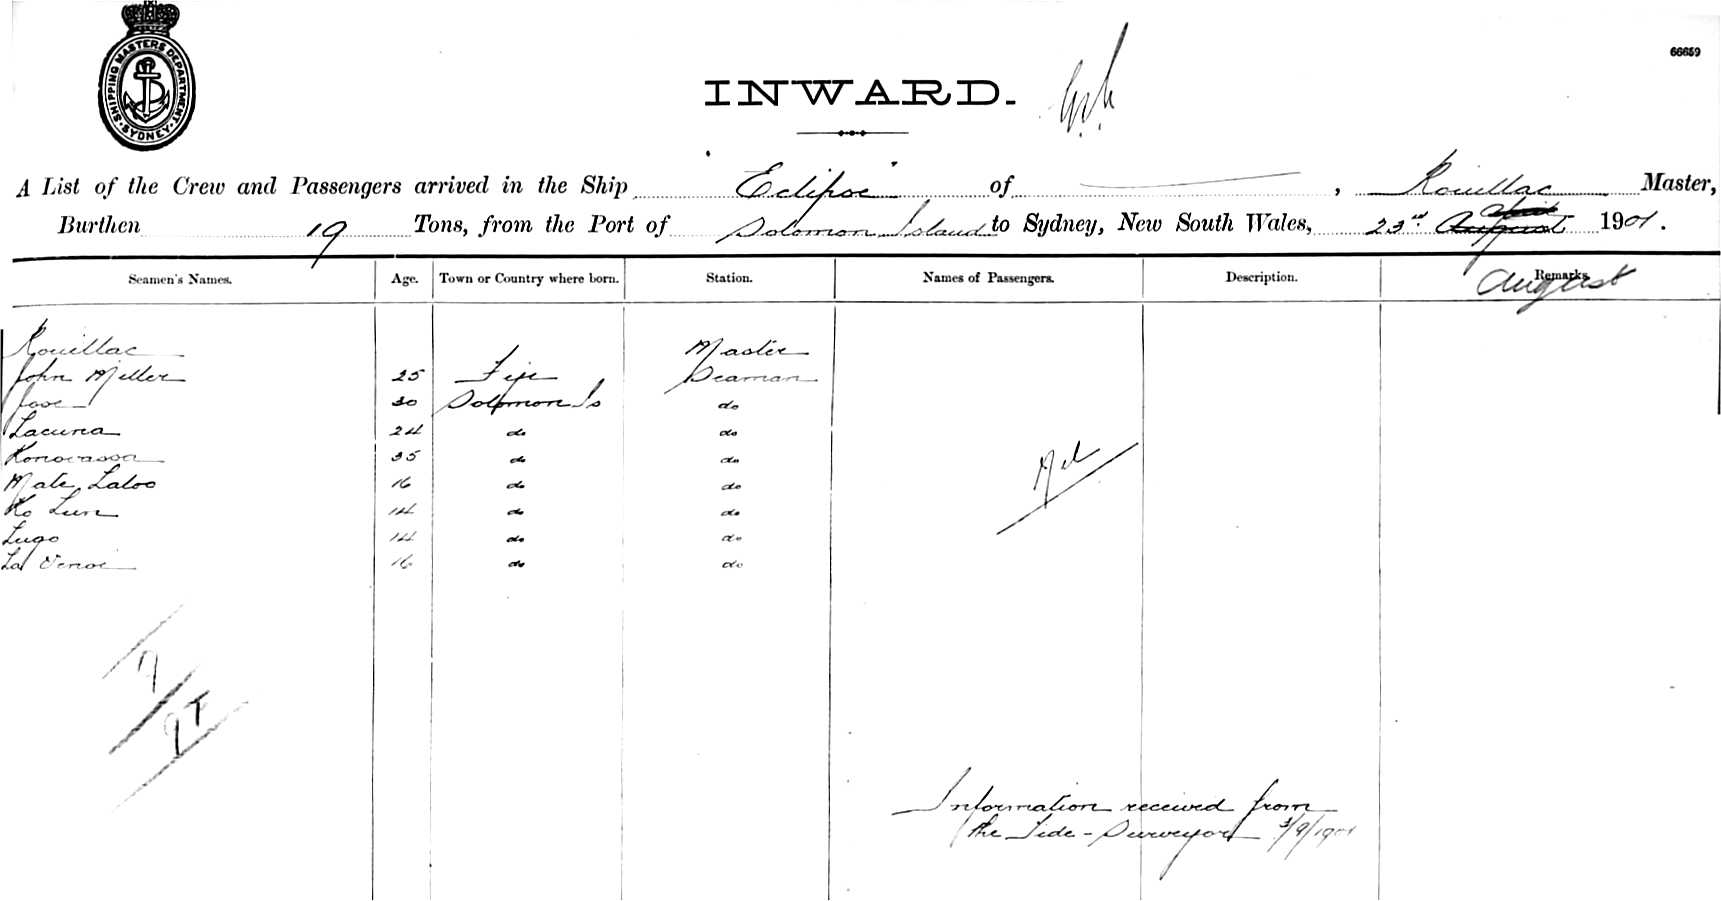 SHIPPING MASTERS DEPARTMENT. SYDNEY.
66659
INWARD.
A List of the Crew and Passengers arrived in the Ship "Eclipse" of — , Rouillac Master,
Burthen 19 Tons, from the Port of Solomon Island to Sydney, New South Wales, 23rd August 1901.
Seamen's Names. Age. Town or Country where born. Station. Names of Passengers. Description. Remarks.
August
Rouillac Master
John Miller 25 Fiji Seaman
Jose 30 Solomon Is do
Lacuna 24 do do
35 do do
Mate Laloo 16 do do
Ko Lun 14 do do
Lugo 14 do do
La 16 do do
Nil
9
Information received from
the Tide-Surveyor 3/9/1901